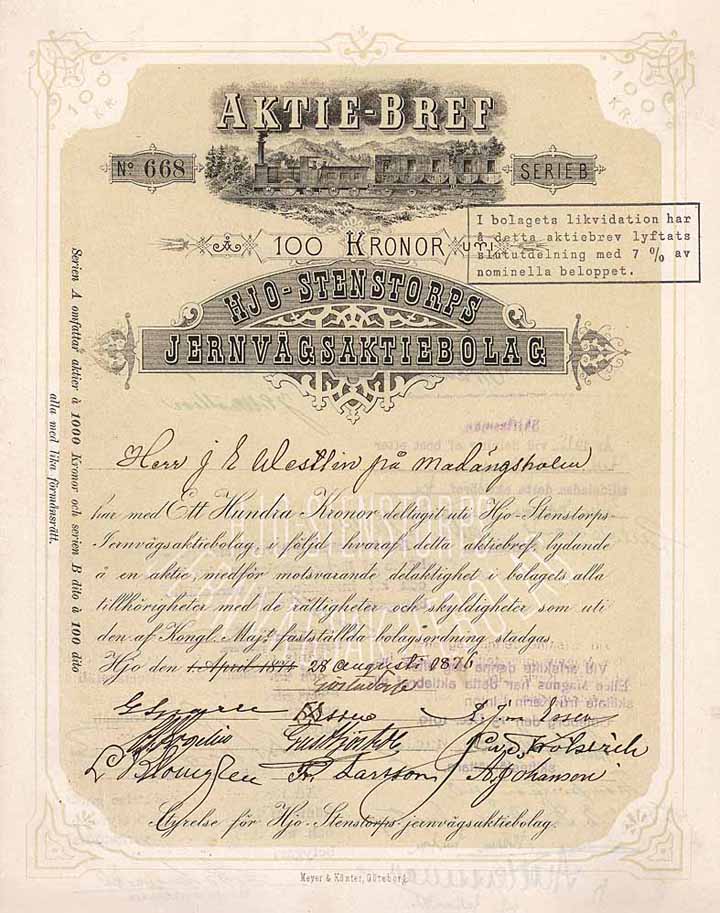 100 KR.
100 KR.
AKTIE-BREF
No 668
SERIE B
Å 100 KRONOR UTI
I bolagets likvidation har
å detta aktiebrev lyftats
slututdelning med 7 % av
nominella beloppet.
HJO-STENSTORPS
JERNVÄGSAKTIEBOLAG
Serien A omfattar aktier à 1000 Kronor och serien B dito à 100 dito
alla med lika förmånsrätt.
Herr J E Westlin på Madängsholm
har med Ett Hundra Kronor deltagit uti Hjo-Stenstorps-
Jernvägsaktiebolag, i följd hvaraf detta aktiebref, lydande
å en aktie, medför motsvarande delaktighet i bolagets alla
tillhörigheter med de rättigheter och skyldigheter som uti
den af Kongl. Maj:t fastställda bolagsordning stadgas.
Hjo den 1. April 1874 28 augusti 1876
Essen
von Essen
L Blomgren Fr. Larsson A Johanson
Styrelse för Hjo-Stenstorps-jernvägsaktiebolag.
Meyer & Köster, Göteborg.